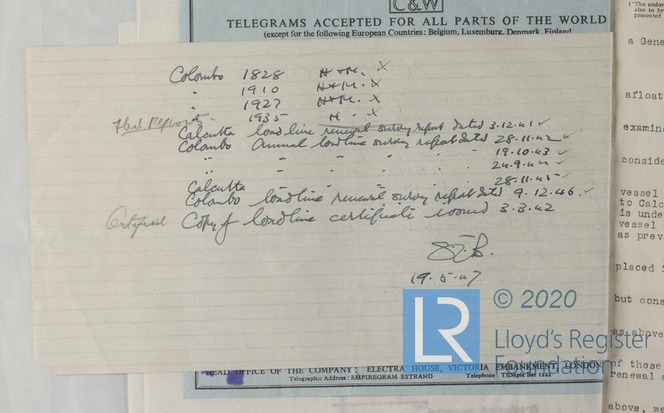 C&W
TELEGRAMS ACCEPTED FOR ALL PARTS OF THE WORLD
(except for the following European Countries: Belgium, Luxemburg, Denmark, Finland
Colombo 1828 H+M. X
" 1910 H+M. X
" 1927 H+M. X
" 1935 H - X
Colombo Annual loadline survey report dated 28.11.42 ✓
" " " " " 19.10.43 ✓
" " " " 24.9.44 ✓
Calcutta " " " " 28.11.45 ✓
Calcutta loadline renewal survey report dated 3.12.41 ✓
Colombo loadline renewal survey report dated 9.12.46. ✓
Copy of loadline certificate issued 3.3.42
19.5.47
© 2020
LR
Lloyd's Register
Foundation
HEAD OFFICE OF THE COMPANY: ELECTRA HOUSE, VICTORIA EMBANKMENT, LONDON
Telegraphic Address: EMPIREGRAM ESTRAND Telephone: TEMple Bar 1222
also to be
presented
a Gene
afloat
examin
conside
vessel
to Calc
is unde
vessel
as prev
placed i
but cons
as above
of these
renewal
above, w